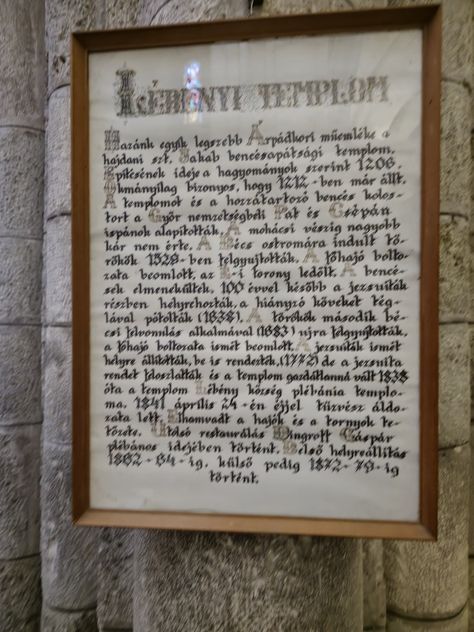 Lébényi Templom
Hazánk egyik legszebb Árpádkori műemléke a
hajdani szt. Jakab bencésapátsági templom.
Építésének ideje a hagyományok szerint 1206.
Okmányilag bizonyos, hogy 1212-ben már állt.
A templomot és a hozzátartozó bencés kolos-
tort a Győr nemzetségbeli Pat és Csépán
ispánok alapították. A mohácsi vészig nagyobb
kár nem érte. A Bécs ostromára indult tö-
rökök 1529-ben felgyujtották. A főhajó bolto-
zata beomlott, az É-i torony ledőlt. A bencé-
sek elmenekültek, 100 évvel később a jezsuiták
részben helyrehozták, a hiányzó köveket tég-
lával pótolták (1638). A törökök második bé-
csi felvonulás alkalmával (1683) ujra felgyujtották,
a főhajó boltozata ismét beomlott. A jezsuiták ismét
helyre állították, be is rendezték, (1772) de a jezsuita
rendet feloszlatták és a templom gazdátlanná vált 1838
óta a templom Lébény község plébánia templo-
ma. 1841 április 24-én éjjel tűzvész áldo-
zata lett. Elhamvadt a hajók és a tornyok te-
tőzete. Utolsó restaurálás Dingroff Gáspár
plébános idejében történt. Belső helyreállítás
1862-64-ig, külső pedig 1872-79-ig
történt.